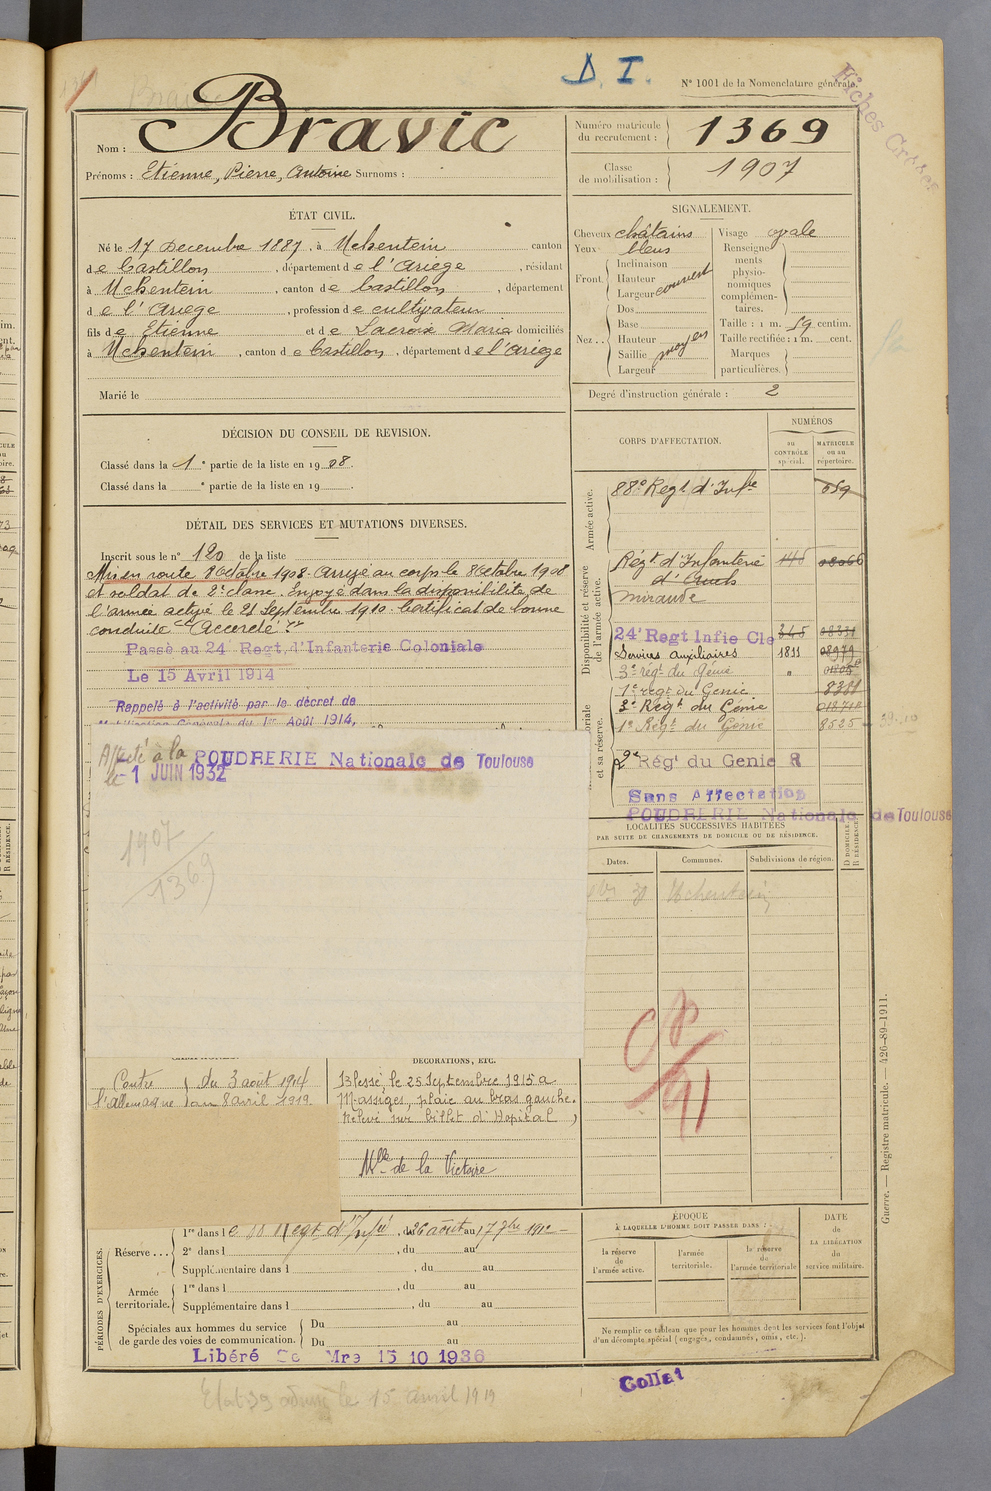 D. I.
N° 1001 de la Nomenclature générale.
Fiches Croses
Nom : Bravic
Prénoms : Etienne, Pierre, Antoine Surnoms :
Numéro matricule du recrutement : 1369
Classe de mobilisation : 1907
ÉTAT CIVIL.
Né le 17 Decembre 1887, à Uchentein canton
de Castillon, département de l'Ariège, résidant
à Uchentein, canton de Castillon, département
de l'Ariege, profession de cultivateur
fils de Etienne et de Lacroix Maria domiciliés
à Uchentein, canton de Castillon, département de l'Ariege
Marié le
SIGNALEMENT.
Cheveux châtains
Yeux bleus
Front Inclinaison
Hauteur
Largeur couvert
Nez Dos
Base
Hauteur
Saillie moyen
Largeur
Visage ovale
Renseignements physionomiques complémentaires.
Taille : 1 m. 59 centim.
Taille rectifiée : 1 m. cent.
Marques particulières.
Degré d'instruction générale : 2
DÉCISION DU CONSEIL DE REVISION.
Classé dans la 1e partie de la liste en 1908.
Classé dans la e partie de la liste en 19
DÉTAIL DES SERVICES ET MUTATIONS DIVERSES.
Inscrit sous le n° 120 de la liste
Mis en route 8 Octobre 1908. Arrivé au corps le 8 Octobre 1908
et soldat de 2e classe. Envoyé dans la disponibilité de
l'armée active le 21 Septembre 1910. Certificat de bonne
conduite "Accordé".
Passé au 24 Regt. d'Infanterie Coloniale
Le 15 Avril 1914
Rappelé à l'activité par le décret de
Mobilisation Générale du 1er Août 1914,
Affecté à la POUDRERIE Nationale de Toulouse
le -1 JUIN 1932
1907
1369
CORPS D'AFFECTATION.
NUMÉROS
au CONTRÔLE spécial.
MATRICULE ou au répertoire.
Armée active.
88e Regt d'Infie 659
Disponibilité et réserve de l'armée active.
Régt d'Infanterie
d'Auch
Mirande
24e Regt Infie Cle 345 08331
Services auxiliaires 1811 08979
3e régt du Génie "
et sa réserve.
1e régt du Genie 8381
3e Régt du Génie
1e Régt du Génie 8525
2e Régt du Genie R
Sans Affectation
POUDRERIE Nationale de Toulouse
LOCALITÉS SUCCESSIVES HABITÉES
PAR SUITE DE CHANGEMENTS DE DOMICILE OU DE RÉSIDENCE.
Dates. Communes. Subdivisions de région. D DOMICILE. R RÉSIDENCE.
30 Uchentein
CP/91
DÉCORATIONS, ETC.
Contre l'allemagne du 3 août 1914 au 8 avril 1919
Blessé le 25 Septembre 1915 a
Massiges, plaie au bras gauche.
(Relevé sur billet d'Hopital)
Mlle de la Victoire
PÉRIODES D'EXERCICES.
Réserve... 1re dans le 88 Regt d'Infie, du 26 août au 17 7bre 191
2e dans l , du au
Supplémentaire dans l , du au
Armée territoriale. 1re dans l , du au
Supplémentaire dans l , du au
Spéciales aux hommes du service de garde des voies de communication. Du au
Du au
Libéré Mre 15 10 1936
ÉPOQUE
À LAQUELLE L'HOMME DOIT PASSER DANS :
la réserve de l'armée active.
l'armée territoriale.
la réserve de l'armée territoriale
DATE de LA LIBÉRATION du service militaire.
Ne remplir ce tableau que pour les hommes dont les services font l'objet
d'un décompte spécial (engagés, condamnés, omis, etc.).
Guerre. — Registre matricule. — 426-89-1911.
le 15 avril 1919